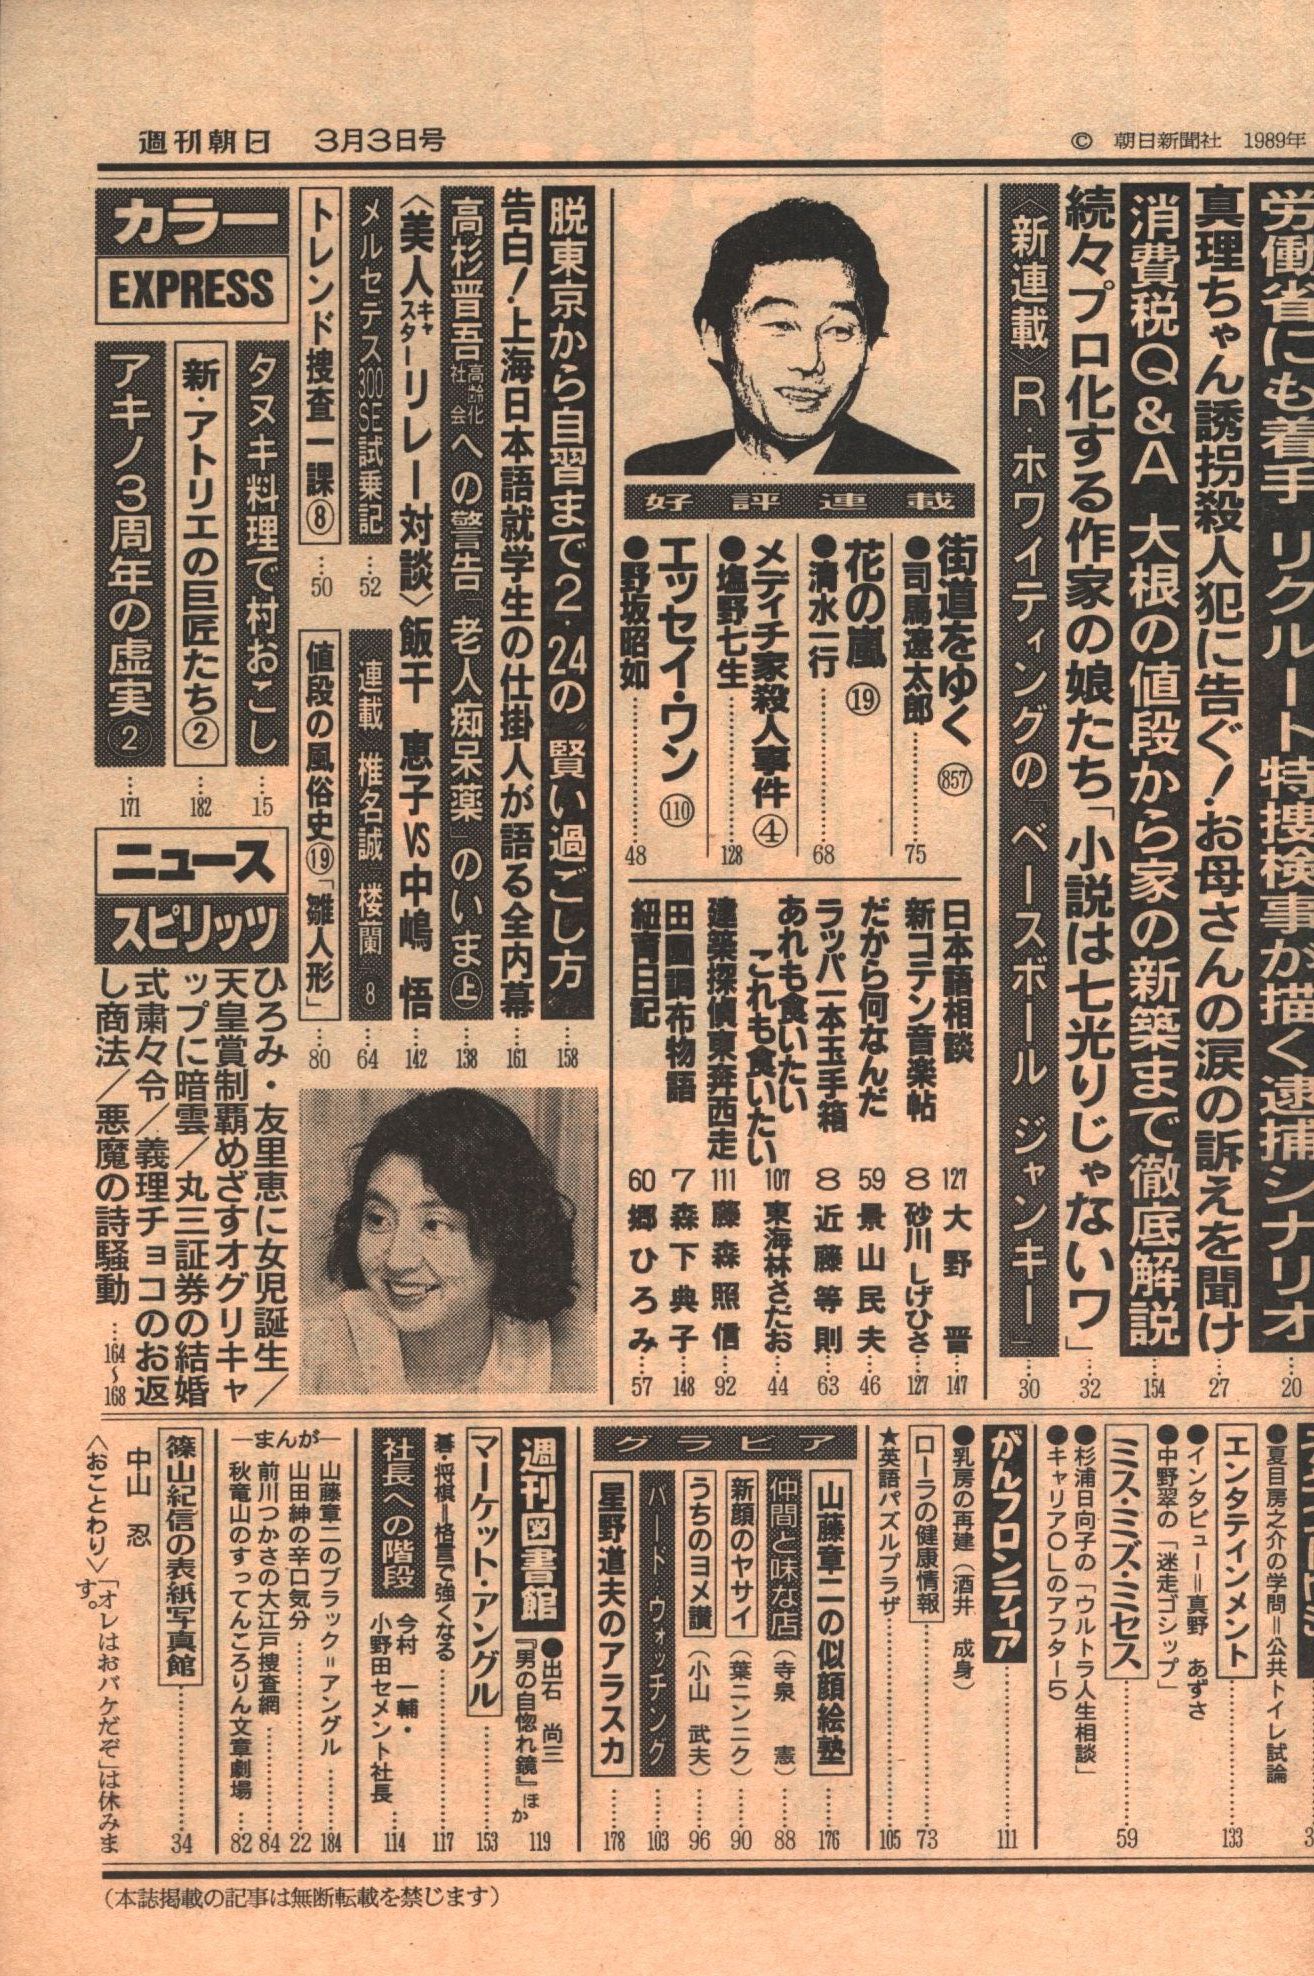 週刊朝日　3月3日号
© 朝日新聞社　1989年
労働省にも着手 リクルート特捜検事が描く逮捕シナリオ……20
真理ちゃん誘拐殺人犯に告ぐ!お母さんの涙の訴えを聞け……27
消費税Q&A 大根の値段から家の新築まで徹底解説……154
続々プロ化する作家の娘たち「小説は七光りじゃないワ」……32
〈新連載〉R・ホワイティングの『ベースボール ジャンキー』……30
好評連載
街道をゆく(857)
●司馬遼太郎……75
花の嵐⑲
●清水一行……68
メディチ家殺人事件④
●塩野七生……128
エッセイ・ワン(110)
●野坂昭如……48
日本語相談　127大野　晋……147
新コテン音楽帖　8砂川しげひさ……127
だから何なんだ　59景山民夫……46
ラッパ一本玉手箱　8近藤等則……63
あれも食いたい
これも食いたい　107東海林さだお……44
建築探偵東奔西走　111藤森照信……92
田園調布物語　7森下典子……148
紐育日記　60郷ひろみ……57
脱東京から自習まで2・24の〝賢い過ごし方……158
告白!上海日本語就学生の仕掛人が語る全内幕……161
高杉晋吾高齢化社会への警告『老人痴呆薬』のいま㊤……138
〈美人キャスターリレー対談〉飯干　恵子VS中嶋　悟……142
メルセデス300SE試乗記……52
連載　椎名誠『楼蘭』8……64
トレンド捜査一課⑧……50
値段の風俗史⑲「雛人形」……80
カラー
EXPRESS
タヌキ料理で村おこし……15
新・アトリエの巨匠たち②……182
アキノ3周年の虚実②……171
ニュース
スピリッツ
ひろみ・友里恵に女児誕生/
天皇賞制覇めざすオグリキャ
ップに暗雲/丸三証券の結婚
式粛々令/義理チョコのお返
し商法/悪魔の詩騒動……164〜168
●夏目房之介の学問=公共トイレ試論
エンタテインメント……133
●インタビュー=真野　あずさ
●中野翠の「迷走ゴシップ」
ミス・ミズ・ミセス……59
●杉浦日向子の「ウルトラ人生相談」
●キャリアOLのアフター5
がんフロンティア……111
●乳房の再建（酒井　成身）
ローラの健康情報……73
★英語パズルプラザ……105
グラビア
山藤章二の似顔絵塾……176
仲間と味な店（寺泉　憲）……88
新顔のヤサイ（葉ニンニク）……90
うちのヨメ讃（小山　武夫）……96
バード・ウォッチング……103
星野道夫のアラスカ……178
週刊図書館
●出石　尚三
『男の自惚れ鏡』ほか……119
マーケット・アングル……153
碁・将棋=格言で強くなる……117
社長への階段
今村　一輔・
小野田セメント社長……114
―まんが―
山藤章二のブラック=アングル……184
山田紳の辛口気分……22
前川つかさの大江戸捜査網……84
秋竜山のすってんころりん文章劇場……82
篠山紀信の表紙写真館……34
中山　忍
〈おことわり〉「オレはおバケだぞ」は休みま
す。
（本誌掲載の記事は無断転載を禁じます）